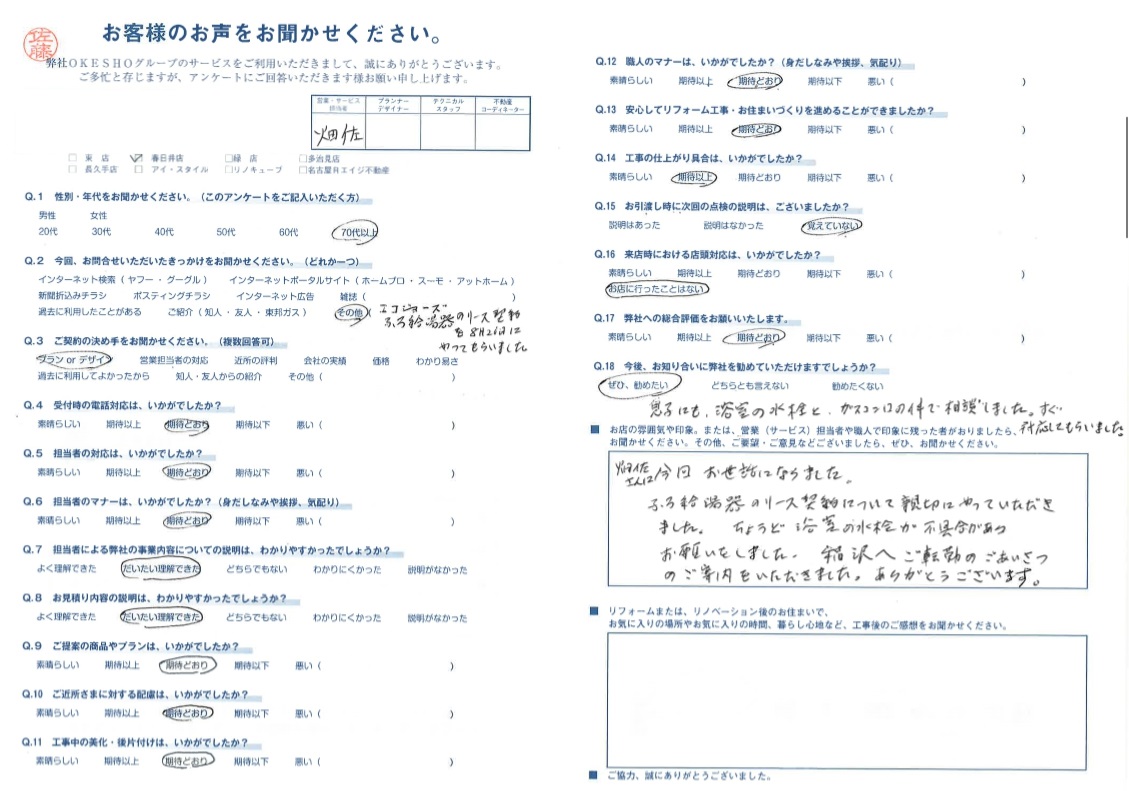 佐藤
お客様のお声をお聞かせください。
弊社OKESHOグループのサービスをご利用いただきまして、誠にありがとうございます。
ご多忙と存じますが、アンケートにご回答いただきます様お願い申し上げます。
営業・サービス担当者 プランナーデザイナー テクニカルスタッフ 不動産コーディネーター
畑佐
□ 東 店 ☑ 春日井店 □緑 店 □多治見店
□ 長久手店 □ アイ・スタイル □リノキューブ □名古屋東エイジ不動産
Q.1 性別・年代をお聞かせください。（このアンケートをご記入いただく方）
男性 女性
20代 30代 40代 50代 60代 70代以上
Q.2 今回、お問合せいただいたきっかけをお聞かせください。（どれか一つ）
インターネット検索（ ヤフー ・ グーグル ） インターネットポータルサイト（ ホームプロ ・ スーモ ・ アットホーム ）
新聞折込みチラシ ポスティングチラシ インターネット広告 雑誌（ ）
過去に利用したことがある ご紹介（ 知人 ・ 友人 ・ 東邦ガス ） その他（ エコジョーズ
ふろ給湯器のリース契約
を8月26日に
やってもらいました
Q.3 ご契約の決め手をお聞かせください。（複数回答可）
プラン or デザイン 営業担当者の対応 近所の評判 会社の実績 価格 わかり易さ
過去に利用してよかったから 知人・友人からの紹介 その他（ ）
Q.4 受付時の電話対応は、いかがでしたか？
素晴らしい 期待以上 期待どおり 期待以下 悪い（ ）
Q.5 担当者の対応は、いかがでしたか？
素晴らしい 期待以上 期待どおり 期待以下 悪い（ ）
Q.6 担当者のマナーは、いかがでしたか？（身だしなみや挨拶、気配り）
素晴らしい 期待以上 期待どおり 期待以下 悪い（ ）
Q.7 担当者による弊社の事業内容についての説明は、わかりやすかったでしょうか？
よく理解できた だいたい理解できた どちらでもない わかりにくかった 説明がなかった
Q.8 お見積り内容の説明は、わかりやすかったでしょうか？
よく理解できた だいたい理解できた どちらでもない わかりにくかった 説明がなかった
Q.9 ご提案の商品やプランは、いかがでしたか？
素晴らしい 期待以上 期待どおり 期待以下 悪い（ ）
Q.10 ご近所さまに対する配慮は、いかがでしたか？
素晴らしい 期待以上 期待どおり 期待以下 悪い（ ）
Q.11 工事中の美化・後片付けは、いかがでしたか？
素晴らしい 期待以上 期待どおり 期待以下 悪い（ ）
Q.12 職人のマナーは、いかがでしたか？（身だしなみや挨拶、気配り）
素晴らしい 期待以上 期待どおり 期待以下 悪い（ ）
Q.13 安心してリフォーム工事・お住まいづくりを進めることができましたか？
素晴らしい 期待以上 期待どおり 期待以下 悪い（ ）
Q.14 工事の仕上がり具合は、いかがでしたか？
素晴らしい 期待以上 期待どおり 期待以下 悪い（ ）
Q.15 お引渡し時に次回の点検の説明は、ございましたか？
説明はあった 説明はなかった 覚えていない
Q.16 来店時における店頭対応は、いかがでしたか？
素晴らしい 期待以上 期待どおり 期待以下 悪い（ ）
お店に行ったことはない
Q.17 弊社への総合評価をお願いいたします。
素晴らしい 期待以上 期待どおり 期待以下 悪い（ ）
Q.18 今後、お知り合いに弊社を勧めていただけますでしょうか？
ぜひ、勧めたい どちらとも言えない 勧めたくない
息子にも、浴室の水栓と、ガスコンロの件で相談しました。すぐ
対応してもらいました
■ お店の雰囲気や印象。または、営業（サービス）担当者や職人で印象に残った者がおりましたら、
お聞かせください。その他、ご要望・ご意見などございましたら、ぜひ、お聞かせください。
畑佐さんに今回 お世話になりました。
ふろ給湯器のリース契約について親切にやっていただき
ました。 ちょうど浴室の水栓が不具合があり
お願いをしました。 稲沢へご転勤のごあいさつ
のご案内をいただきました。ありがとうございます。
■ リフォームまたは、リノベーション後のお住まいで、
お気に入りの場所やお気に入りの時間、暮らし心地など、工事後のご感想をお聞かせください。
■ ご協力、誠にありがとうございました。